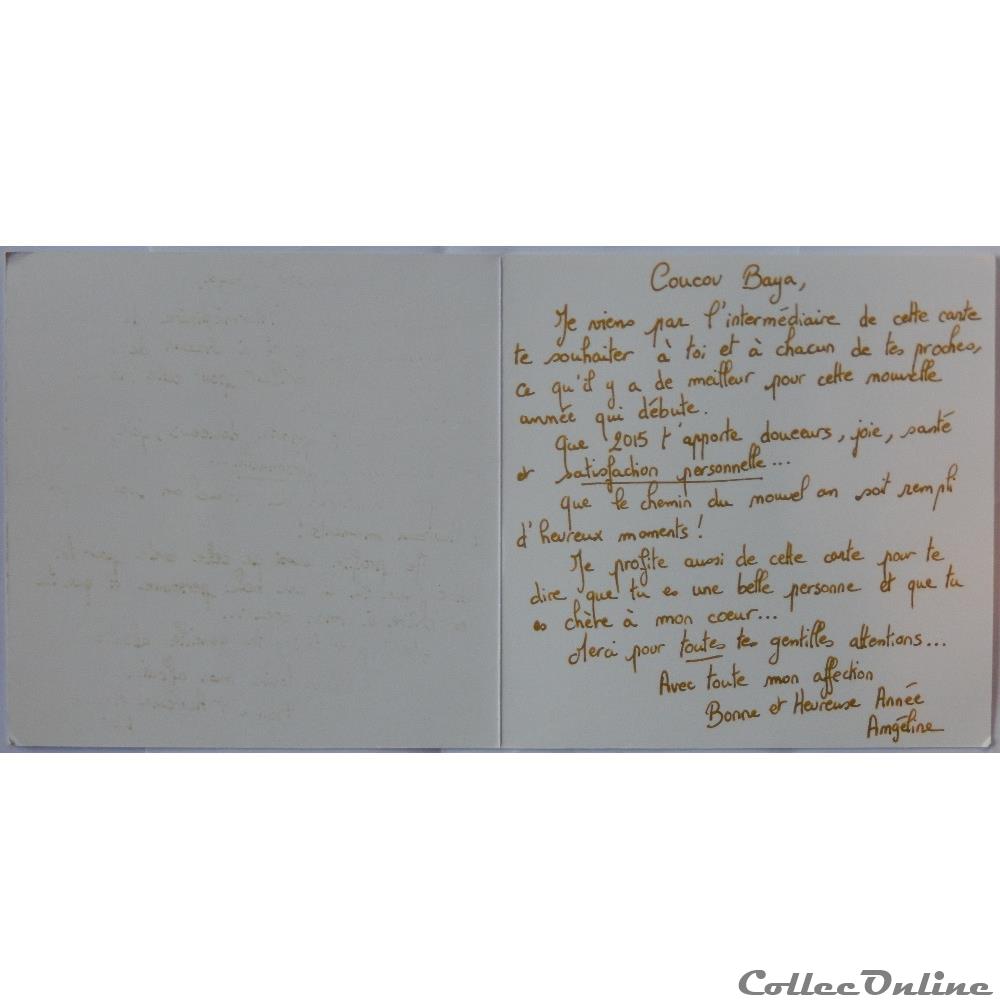 Coucou Baya,
Je viens par l'intermédiaire de cette carte
te souhaiter à toi et à chacun de tes proches,
ce qu'il y a de meilleur pour cette nouvelle
année qui débute.
Que 2015 t'apporte douceurs, joie, santé
et satisfaction personnelle...
Que le chemin du nouvel an soit rempli
d'heureux moments !
Je profite aussi de cette carte pour te
dire que tu es une belle personne et que tu
es chère à mon coeur...
Merci pour toutes tes gentilles attentions...
Avec toute mon affection
Bonne et Heureuse Année
Angéline
CollecOnline